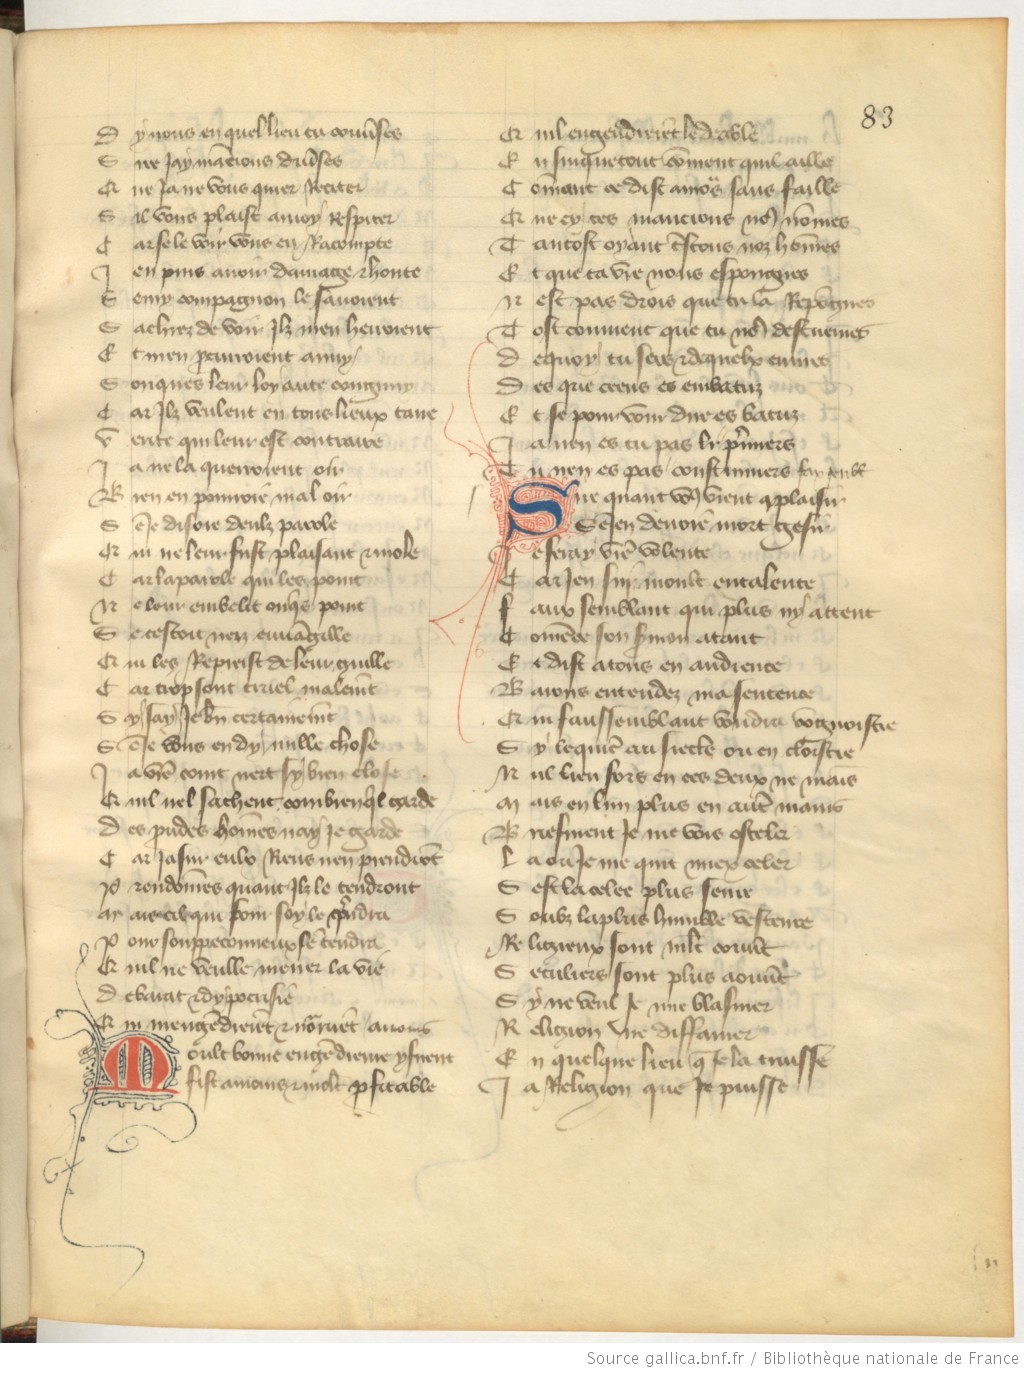 83
D y nous en quel lieu tu couv̄ses
S ire Jay mācions diūses
Q ue Ja ne vous quier Reciter
S il vous plaist a moy respiter
C ar se le voir vous en Racompte
J en puis avoir damage & honte
S e my compagnon le savoient
S achiez de voir Ilz men herroient
E t men pcurroient anuy
S onques leur loyaute congnuy
C ar Ilz veulent en tous lieux taire
V erite qui leur est contraire
J a ne la querroient oir
B ien en pourroie mal oir
S e Je disoie deulz parole
Q ui ne leur fust plaisant & mole
C ar la parole qui les point
N e leur embelit onq̄s point
S e cestoit neiz euuāgille
Q ui les Repreist de leur guille
C ar trop sont cruel malemēt
S y say Je bn̄ certainemēt
S e Je vous en dy nulle chose
J a vr̄e court nert sy bien close
Q uil nel sachent combien q̄l tarde
D es preudes hōmes nay Je garde
C ar Ja sur eulx Riens nen prendrōt
P reudommes quant Ilz le tendront
M ais cil qui sour soy le prēdra
P our souppeconneux se tendra
Q uil ne veulle mener la vie
D e barat & dypocrisie
Q ui mengēdrerēt & norrirēt amours
M oult bonne engēdreure y firent
fist amours & molt pfitable
Q uil engendrerēt le deable
E n sinquetout cōment quil aille
C omant ce dist amo's sans faille
Q ue cy tes mancions no' nōmes
T antost oyant trestous noz hōmes
E t que ta vie nous espongnes
N est pas drois que tu la Repongnes
T ost convient que tu no' descueuures
D e quoy tu sers & de quelx euures
D es que ceens es embatuz
E t se pour voir dire es batuz
J a nen es tu pas ly p̄miers
T u nen es pas coustumiers
S ire quant vo' vient a plaisir
Se Jen deuoie mort gesir
J e feray vr̄e volente
C ar Jen sui moult entalente
F aux semblant qui plus ny attent
C omēce son s̄mon atant
E t dist a tous en audience
B arons entendez ma sentence
Q ui faussemblant voudra congnoistre
S y le quiere au siecle ou en cloistre
N ul lieu fors en ces deux ne mais
M ais en lun plus en autre mains
B riefment Je me vois osteler
L a ou Je me cuit miex celer
S est la celee plus seure
S oubz la plus humble vesteure
R eligieux sont mlt couūt
S eculiers sont plus aouūt
S y ne veul Je mie blasmer
R eligion ne diffamer
E n quelque lieu q̄ Je la truisse
J a Religion que Je puisse